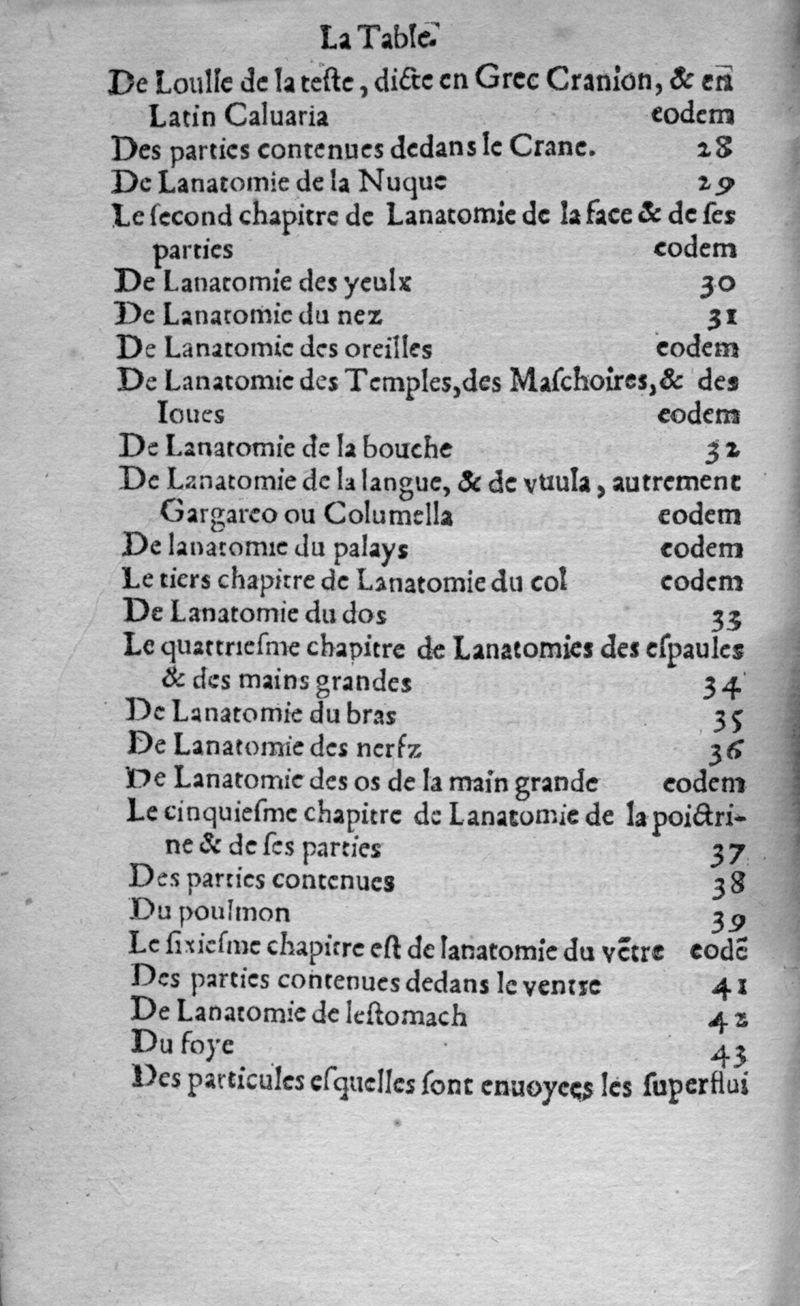 La Table.
De Loulle de la teſte, dicte en Grec Cranion, & en
Latin Caluaria eodem
Des parties contenues dedans le Crane. 28
De Lanatomie de la Nuque 29
Le ſecond chapitre de Lanatomie de la face & de ſes
parties eodem
De Lanatomie des yeulx 30
De Lanatomie du nez 31
De Lanatomie des oreilles eodem
De Lanatomie des Temples, des Maſchoires, & des
Ioues eodem
De Lanatomie de la bouche 32
De Lanatomie de la langue, & de vuula, autrement
Gargareo ou Columella eodem
De lanatomie du palays eodem
Le tiers chapitre de Lanatomie du col eodem
De Lanatomie du dos 33
Le quattrieſme chapitre de Lanatomies des eſpaules
& des mains grandes 34
De Lanatomie du bras 35
De Lanatomie des nerfz 36
De Lanatomie des os de la main grande eodem
Le cinquieſme chapitre de Lanatomie de la poictri-
ne & de ſes parties 37
Des parties contenues 38
Du poulmon 39
Le ſixieſme chapitre eſt de lanatomie du vẽtre eodẽ
Des parties contenues dedans le ventre 41
De Lanatomie de leſtomach 42
Du foye 43
Des particules eſquelles ſont enuoyees les ſuperflui